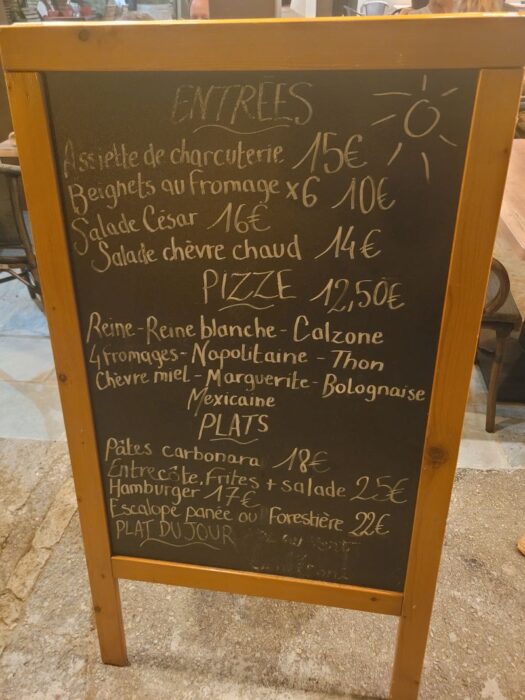 ENTRÉES
Assiette de charcuterie 15€
Beignets au fromage x6 10€
Salade César 16€
Salade chèvre chaud 14€
PIZZE 12,50€
Reine - Reine blanche - Calzone
4 fromages - Napolitaine - Thon
Chèvre miel - Marguerite - Bolognaise
Mexicaine
PLATS
Pâtes carbonara 18€
Entrecôte, Frites + salade 25€
Hamburger 17€
Escalope panée ou Forestière 22€
PLAT DU JOUR